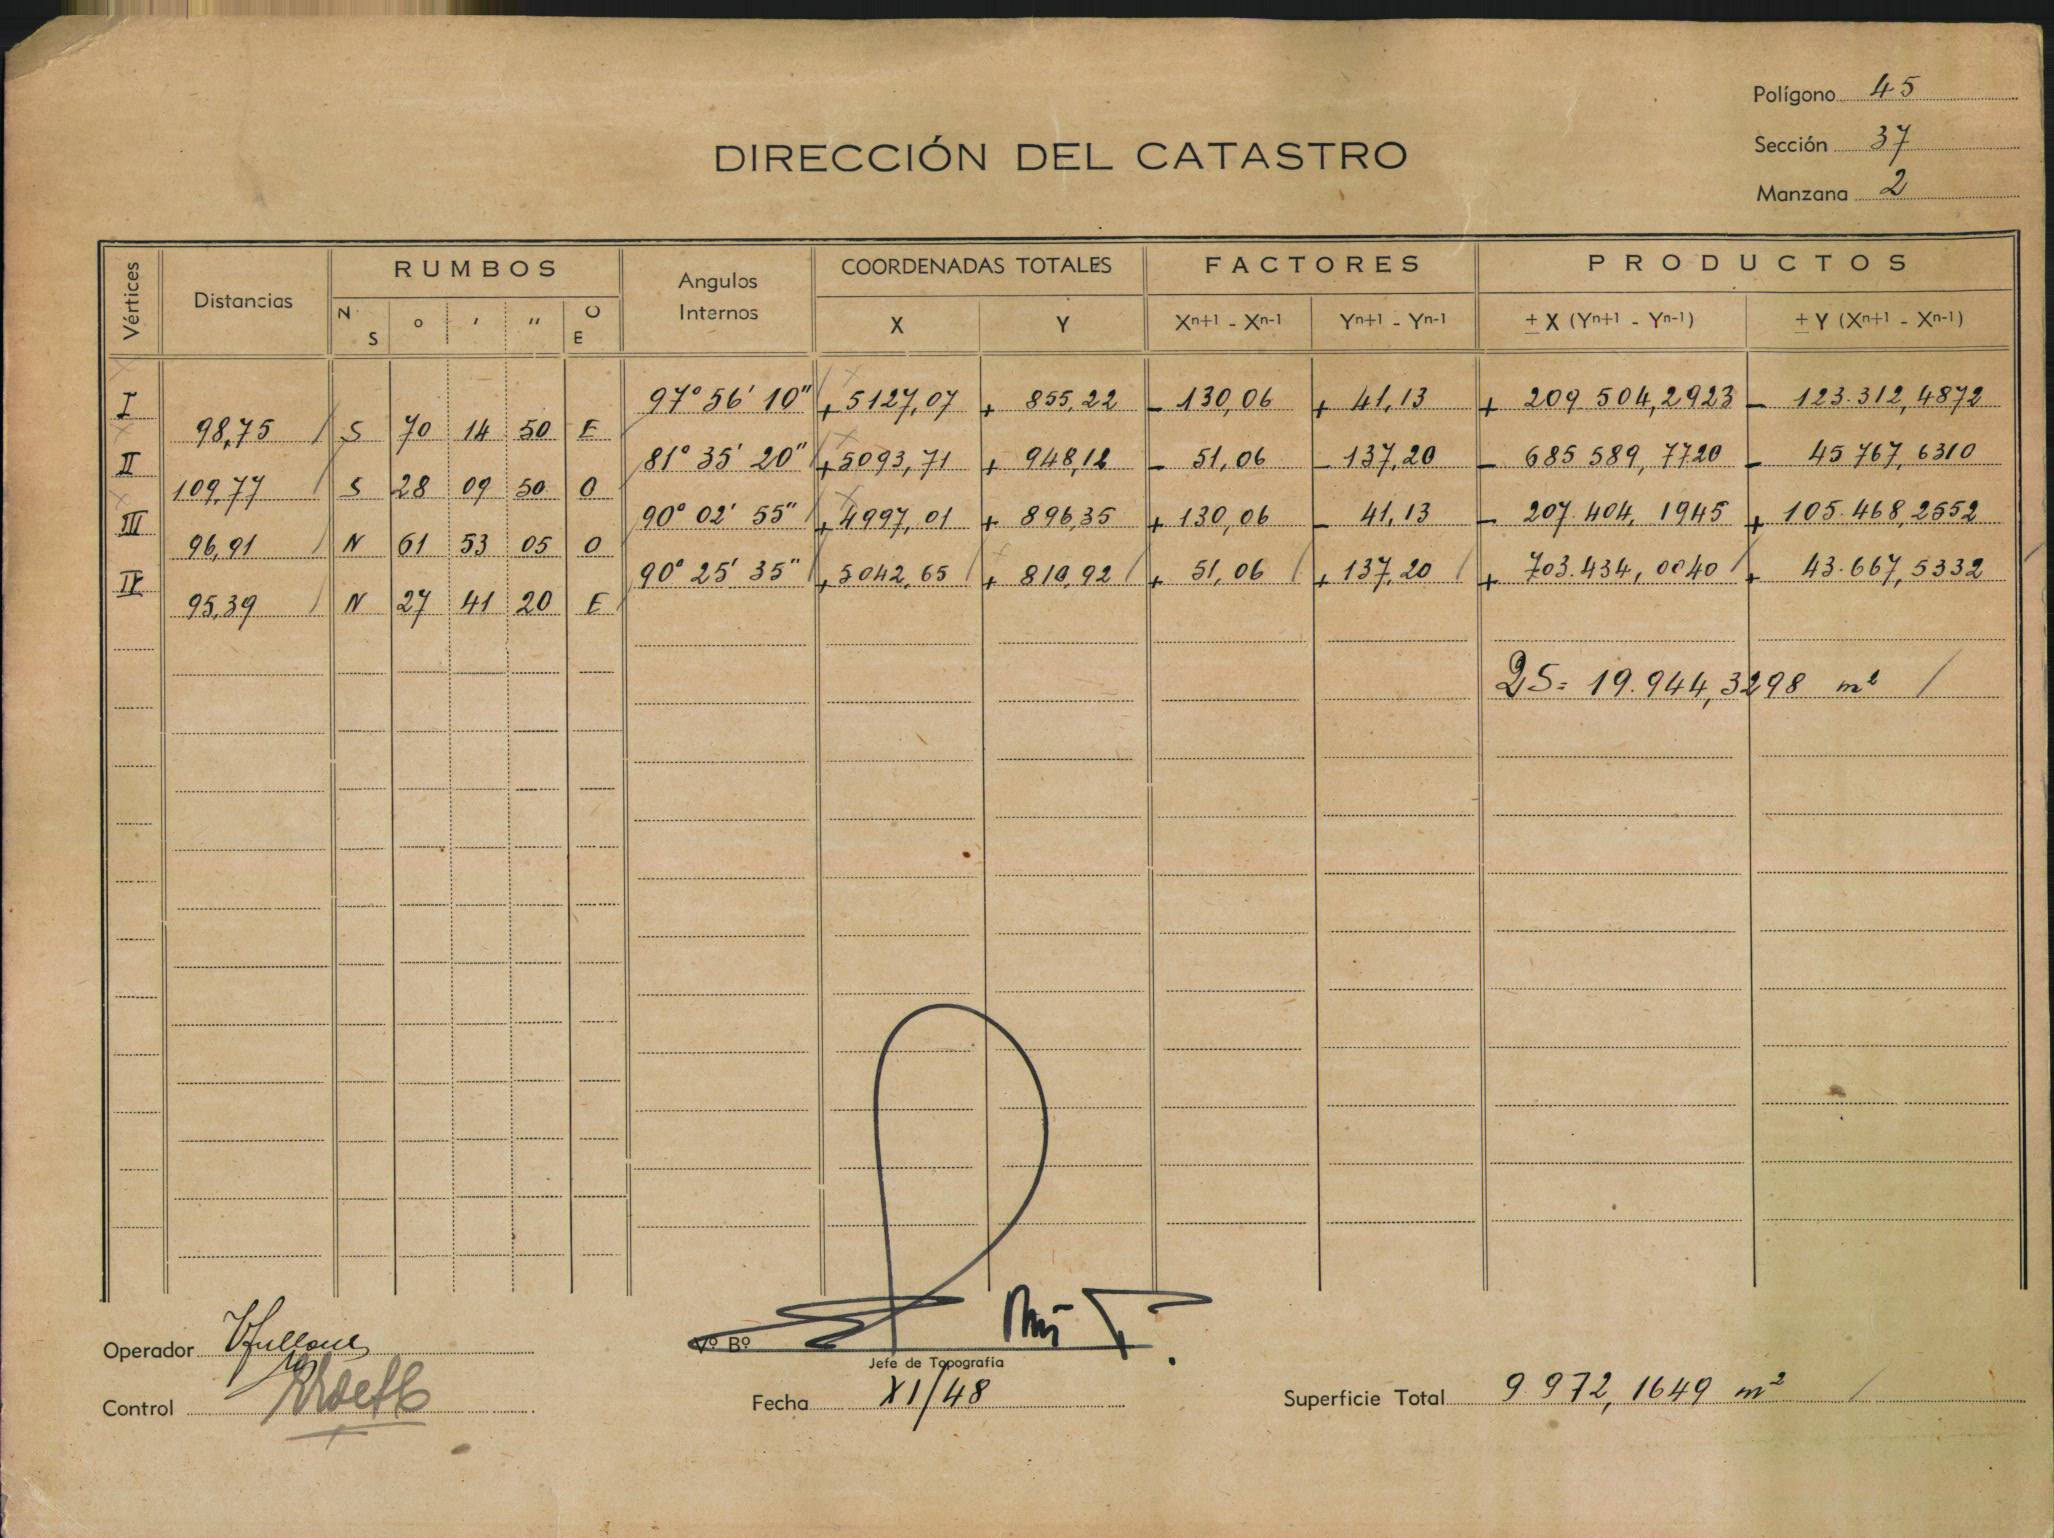 Polígono 45
Sección 37
Manzana 2
DIRECCIÓN DEL CATASTRO
Vértices Distancias RUMBOS Angulos Internos COORDENADAS TOTALES FACTORES PRODUCTOS
N S ° ' " O E X Y Xn+1 - Xn-1 Yn+1 - Yn-1 ± X (Yn+1 - Yn-1) ± Y (Xn+1 - Xn-1)
I 97° 56' 10" + 5127,07 + 855,22 - 130,06 + 41,13 + 209 504,2923 - 123.312,4872
98,75 S 70 14 50 E
II 81° 35' 20" + 5093,71 + 948,12 - 51,06 - 137,20 - 685 589,7720 - 45 767,6310
109,77 S 28 09 50 O
III 90° 02' 55" + 4997,01 + 896,35 + 130,06 - 41,13 - 207.404,1945 + 105.468,2552
96,91 N 61 53 05 O
IV 90° 25' 35" + 5042,65 + 810,92 + 51,06 + 137,20 + 703.434,0040 + 43.667,5332
95,39 N 27 41 20 E
2S= 19.944,3298 m²
Operador
Vº Bº
Jefe de Topografía
Control
Fecha XI/48
Superficie Total 9.972,1649 m²